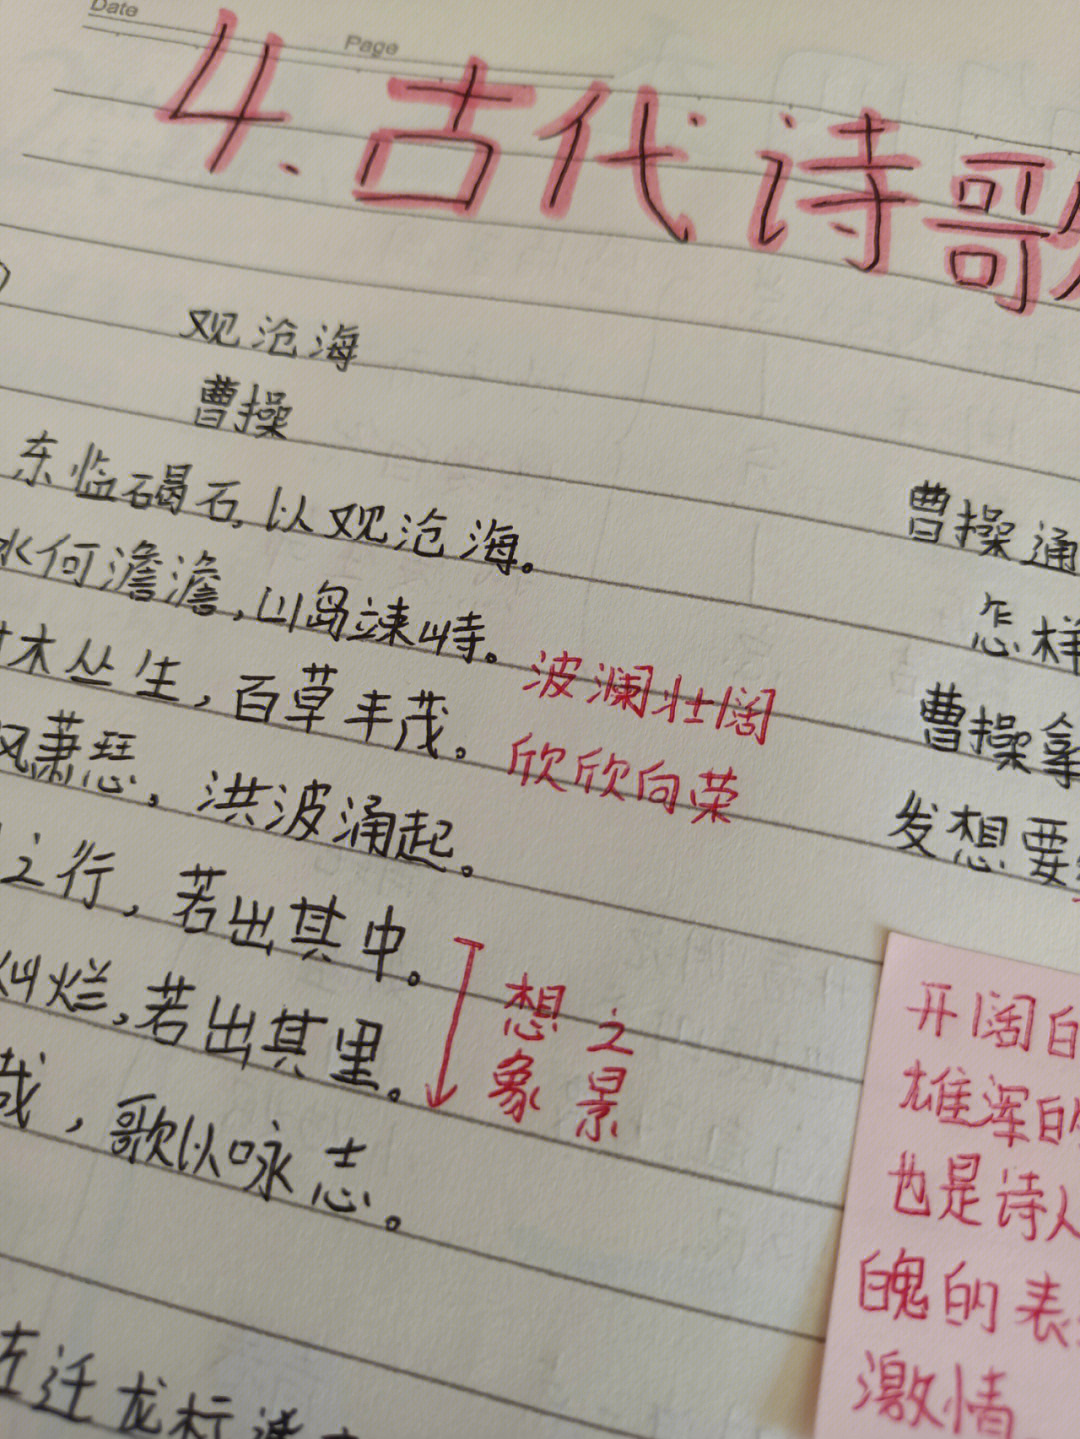 Date
Page
4.古代诗歌
观沧海
曹操
东临碣石,以观沧海。
水何澹澹,山岛竦峙。
木丛生,百草丰茂。
波澜壮阔
风萧瑟,洪波涌起。
欣欣向荣
之行,若出其中。
烂,若出其里。
想之
象景
哉,歌以咏志。
左迁龙标
曹操通
怎样
曹操拿
发想要
开阔的
雄浑的
也是诗人
魄的表
激情